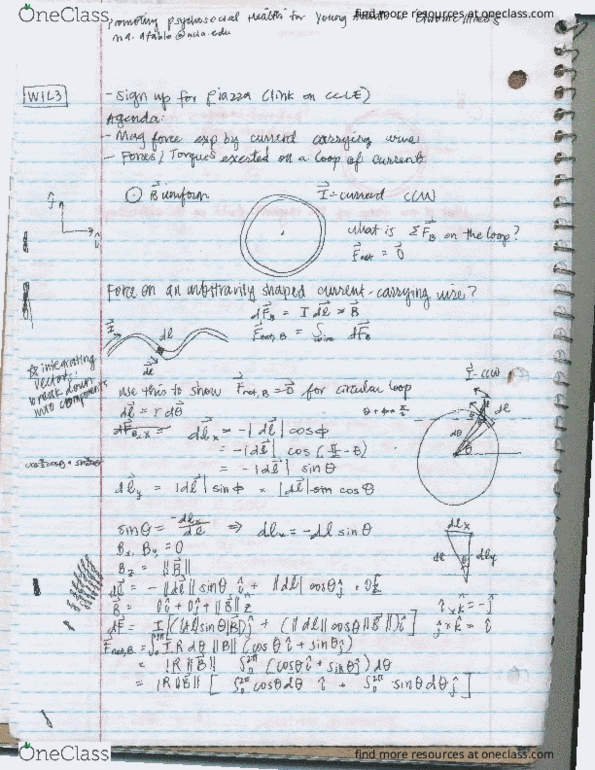 OneClass
find more resources at oneclass.com
Promoting psychosocial Health for Young
W1L3
- Sign up for piazza (link on CCLE)
Agenda:
- Mag force exp by current carrying wire
- Forces / Torques exerted on a loop of current
B⃗ uniform
I⃗ = current CCW
ĵ
î
what is ΣF⃗_B on the loop?
F⃗_net = 0⃗
Force on an arbitrarily shaped current-carrying wire?
dF_B = I dl⃗ × B⃗
F⃗_net,B = ∫ dF_B
I⃗
dl
dl⃗
integrating vectors: break down into components
use this to show F⃗_net,B = 0⃗ for circular loop
I⃗ CCW
dl
dθ
θ
dl⃗ = r dθ
θ + φ = π/2
dl⃗_x = -|dl⃗| cosφ
= -|dl⃗| cos(π/2 - θ)
= -|dl⃗| sinθ
dl⃗_y = |dl⃗| sinφ = |dl⃗| cosθ
sinθ = -dl_x/dl ⇒ dl_x = -dl sinθ
dl_x
dl
dl_y
B_x, B_y = 0
B_z = ||B⃗||
dl⃗ = -||dl⃗|| sinθ î + ||dl|| cosθ ĵ + 0k̂
B⃗ = 0î + 0ĵ + ||B⃗|| ẑ
î × k̂ = -ĵ
ĵ × k̂ = î
dF⃗ = I[(||dl|| sinθ |B|)ĵ + (||dl|| cosθ ||B⃗||)î]
F⃗_net,B = ∫₀^2π I R dθ ||B|| (cosθ î + sinθ ĵ)
= IR||B⃗|| ∫₀^2π (cosθ î + sinθ ĵ) dθ
= IR||B⃗|| [∫₀^2π cosθ dθ î + ∫₀^2π sinθ dθ ĵ]
OneClass
find more resources at oneclass.com